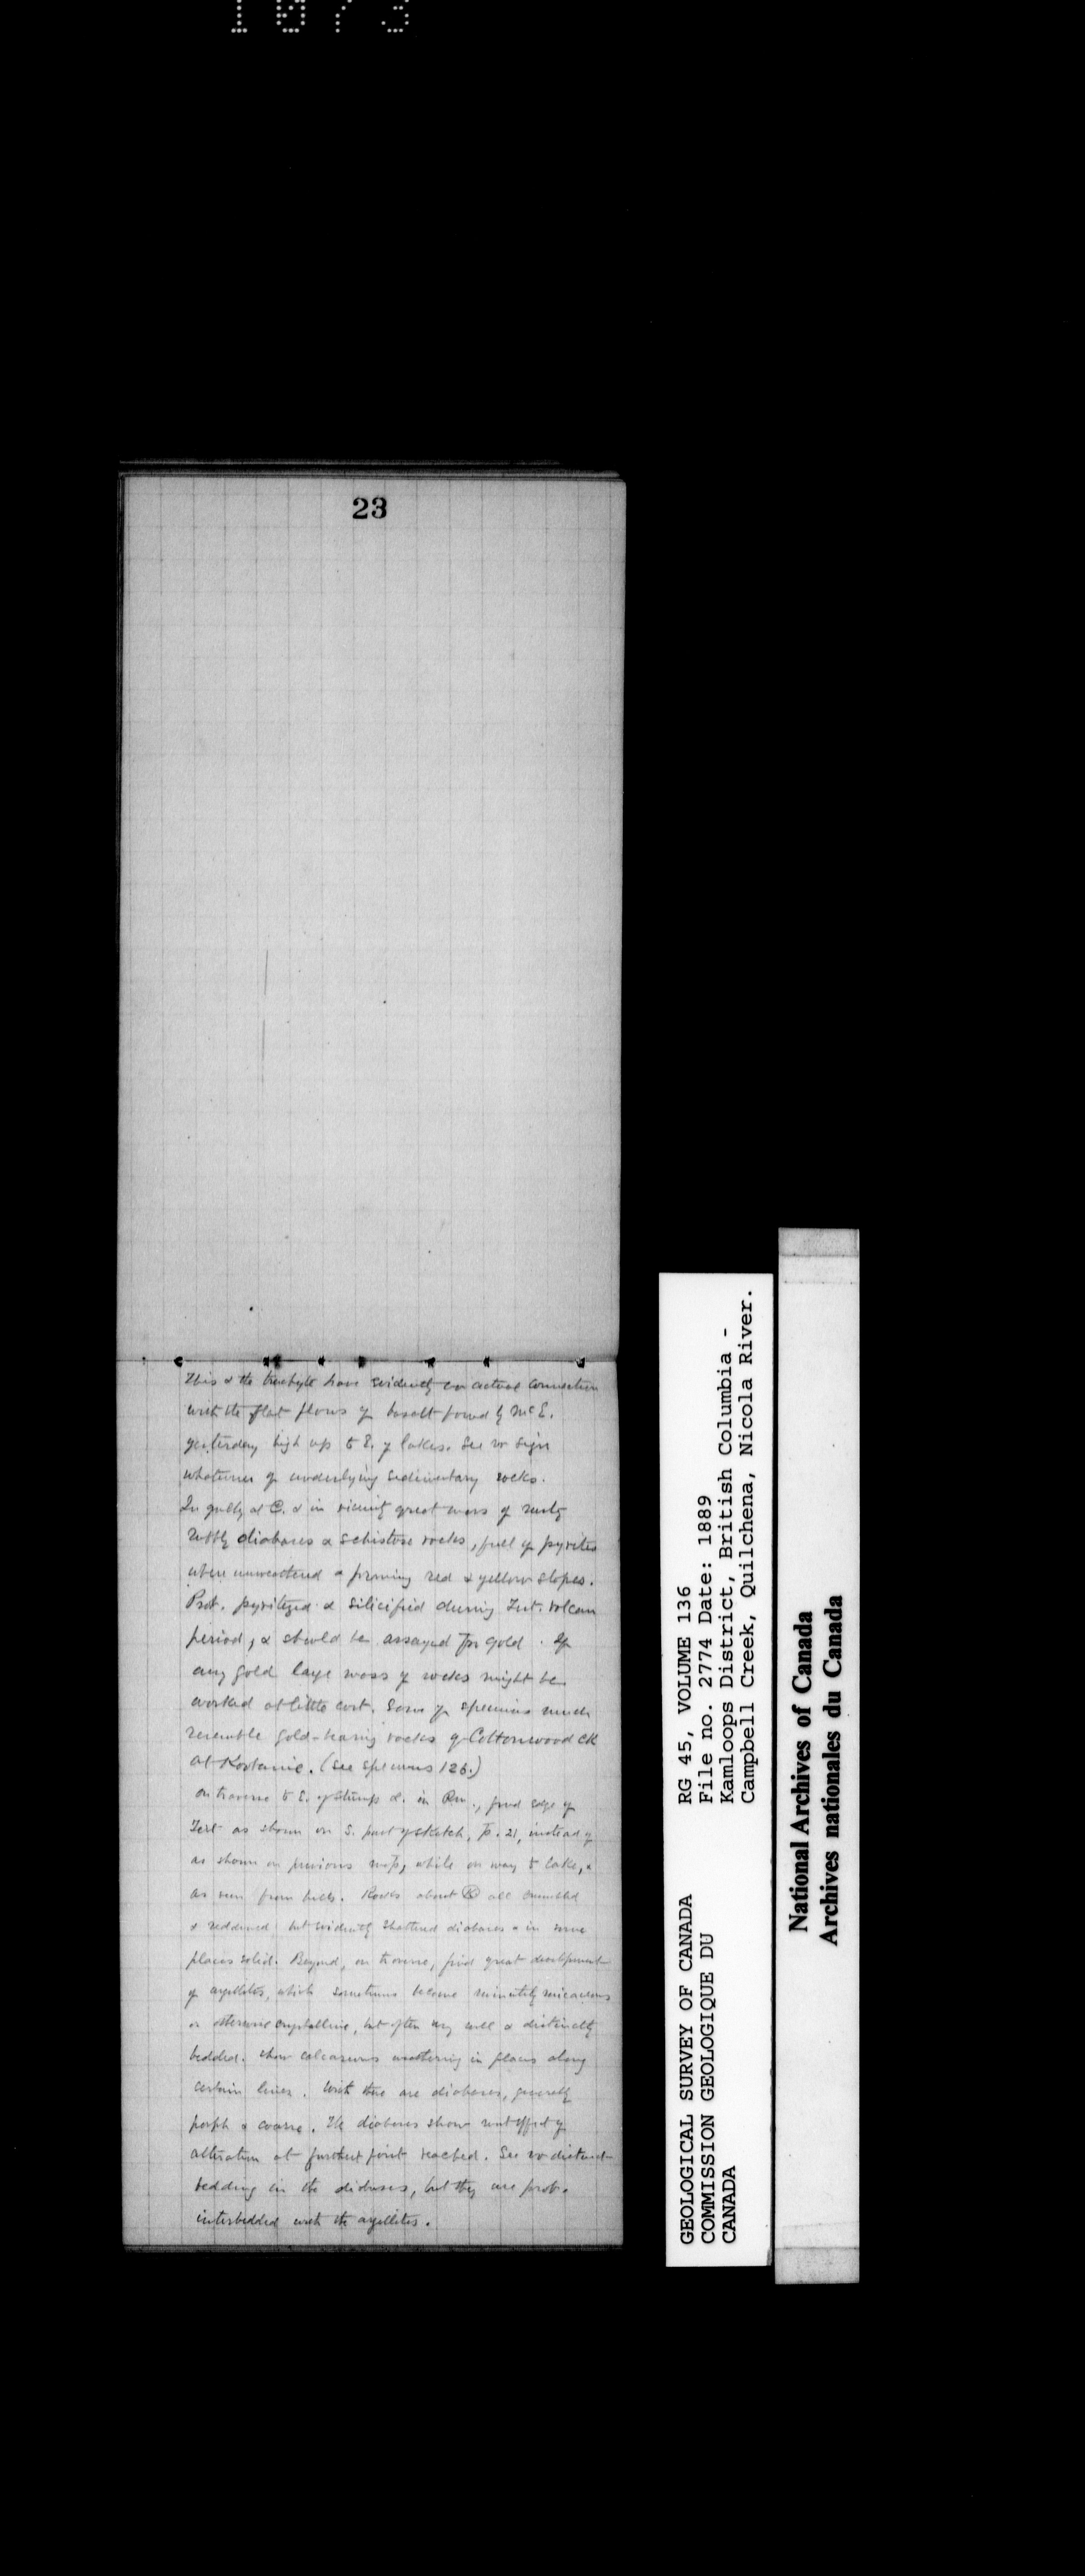 1073
23
This & the trachyte have evidently no actual connection
with the flat flows of basalt found by McE.
yesterday high up to E. of lakes. See no sign
whatever of underlying sedimentary rocks.
In gully at C. & in vicinity great mass of rusty
diabases & schistose rocks, full of pyrites
where unweathered & forming red & yellow slopes.
Prob. pyritized & silicified during Tert. volcan
period, & should be assayed for gold. If
any gold large mass of rocks might be
worked at little cost. Some of specimens much
resemble gold-bearing rocks of Cottonwood Ck
at Kootanie. (See specimens 126.)
On traverse to E. of Stumps L. in Rm., find edge of
Tert as shown on S. part of sketch, p. 21, instead of
as shown on previous map, while on way to lake, &
as seen from hills. Rocks about all crumbled
& reddened but evidently shattered diabases & in some
places solid. Beyond, on traverse, find great development
of argillites, which sometimes become minutely micaceous
or otherwise crystalline, but often very well & distinctly
bedded. Show calcareous weathering in places along
certain lines. With these are diabases, generally
porph & coarse. The diabases show effect of
alteration at furthest point reached. See no distinct
bedding in the diabases, but they are prob.
interbedded with the argillites.
GEOLOGICAL SURVEY OF CANADA
COMMISSION GEOLOGIQUE DU
CANADA
RG 45, VOLUME 136
File no. 2774 Date: 1889
Kamloops District, British Columbia -
Campbell Creek, Quilchena, Nicola River.
National Archives of Canada
Archives nationales du Canada